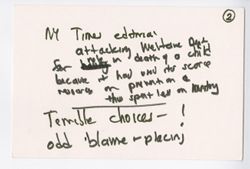 2
NY Times editorial
attacking Welfare Dept
for in death of a child
because it had used its scarce
resources on prevention &
thus spent less on
Terrible choices - !
odd 'blame - placing